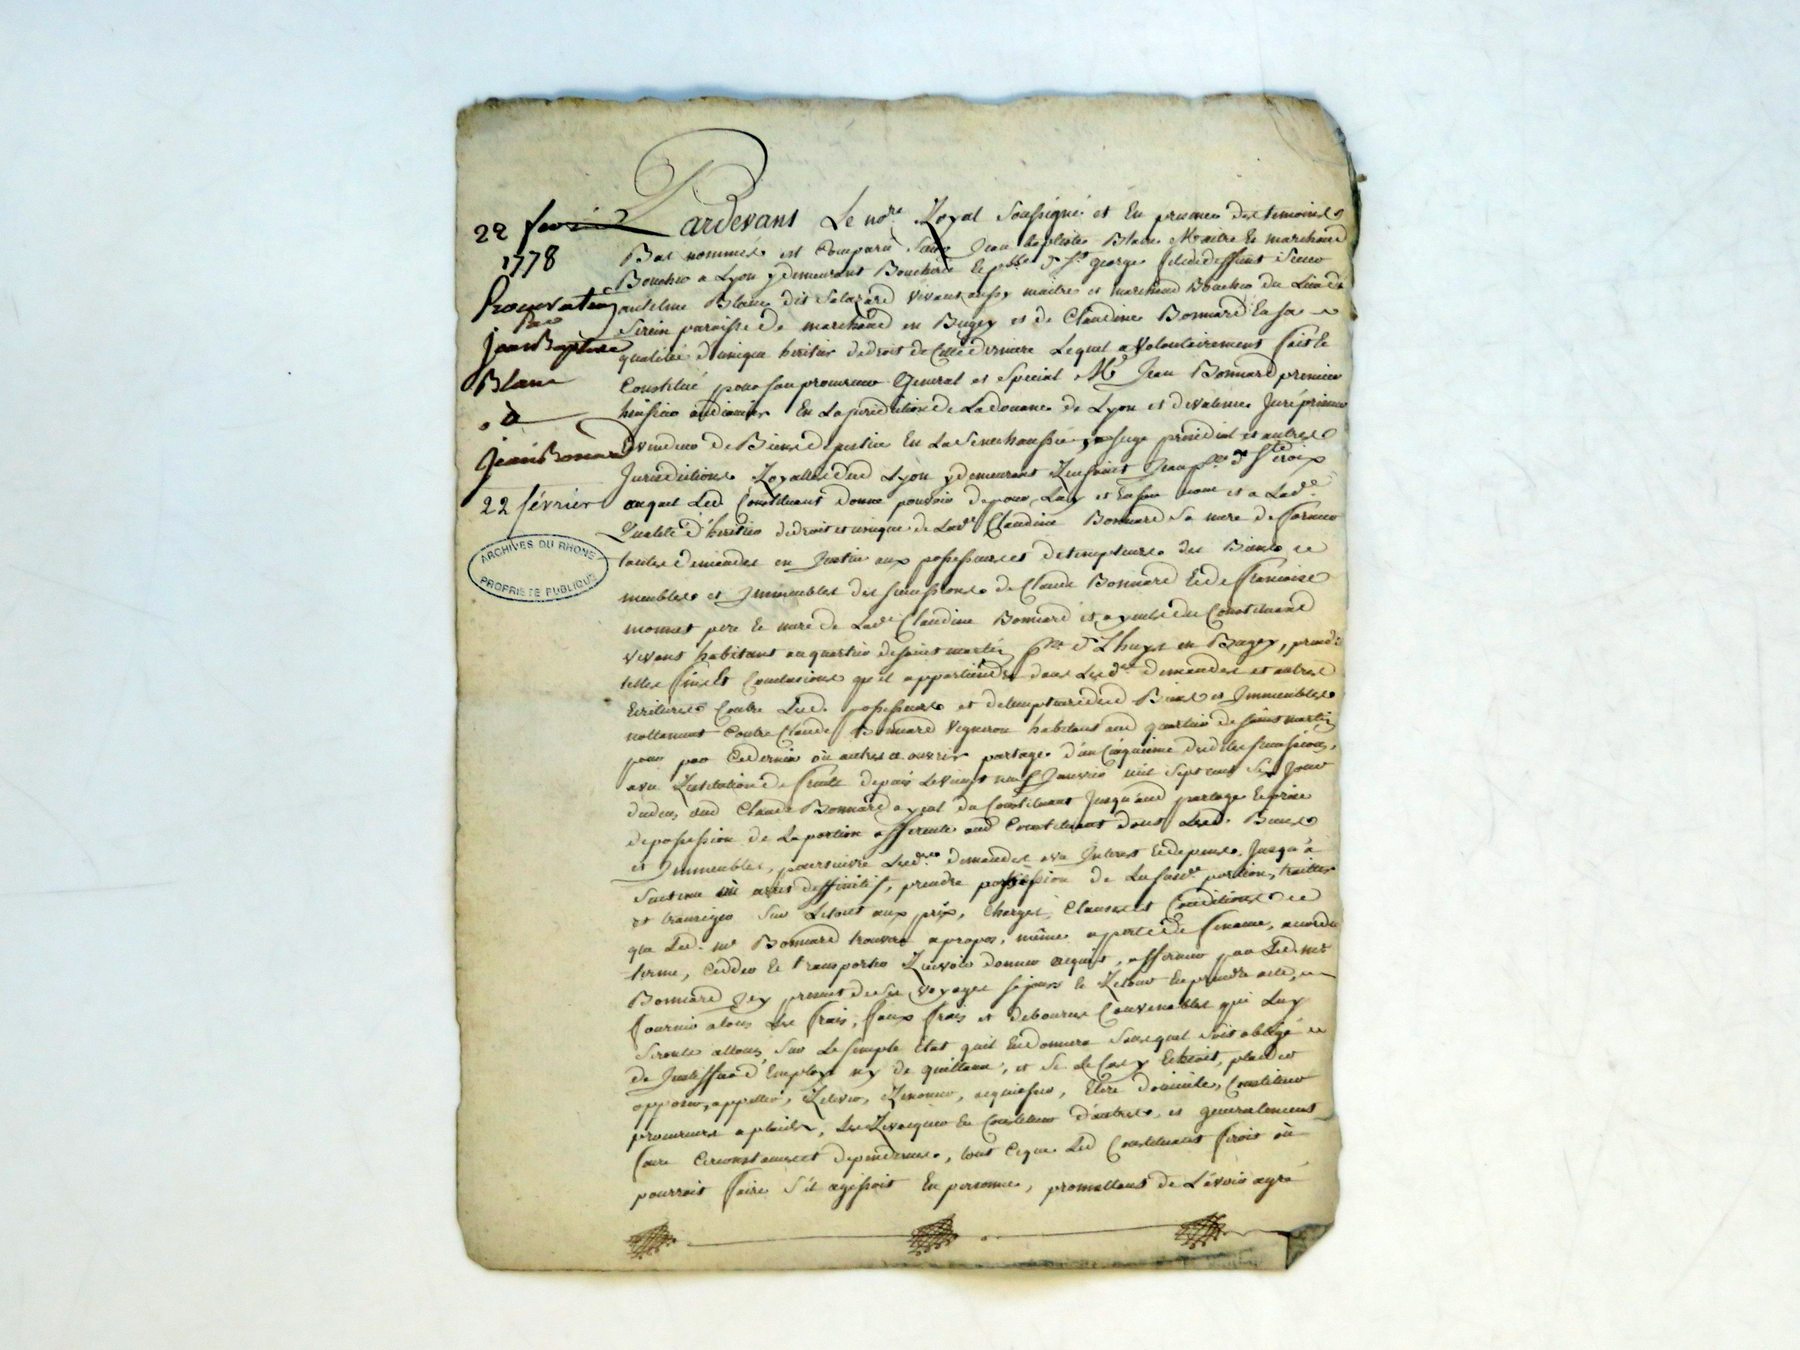 22 fevrier
1778
Procuration
Par
Jean Baptiste
Blanc
à
Jean Bonnard
22 février
ARCHIVES DU RHONE
PROPRIETE PUBLIQUE
Pardevant Le nore Royal Soussigné et En presence des temoins
Bas nommés est Comparu Jean baptiste Blanc Maitre Et marchand
Boucher a Lyon y demeurant Boucherie St george fils de deffunt Sieur
antelme Blanc dit Salazard vivant aussy maitre et marchand Boucher du Lieu de
Serin paroisse de marchand en Bugey et de Claudine Bonnard En sa
qualité d'unique heritier de droit de Cette derniere Lequel a volontairement fait Et
Constitué pour son procureur General et Special Me Jean Bonnard premier
huissier audiancier En La juridiction de La douane de Lyon et de valence Juré priseur
vendeur de Biens de justice En La Senechaussée, siege presidial et autres
Juridictions Royalles dud Lyon y demeurant
auquel Led Constituant donne pouvoir de pour Luy et En son nom et a Lade
Qualité d'heritier de droit et unique de Lade Claudine Bonnard Sa mere de former
toutes demandes en Justice aux possesseurs et detempteurs des Biens
meubles et Immeubles des successions de Claude Bonnard Et de francoise
momet pere Et mere de Lade Claudine Bonnard et ayeuls du Constituant
vivant habitant au quartier de saint martin psse d'Lhuys en Bugey, prendre
telles fins Et Conclusions qu'il appartiendra dans Lesdes demandes et autres
Ecritures Contre Lesd. possesseurs et detempteurs desd Biens et Immeubles
nottamment Contre Claude Bonnard vigneron habitant aud quartier de saint martin
pour par Ce dernier où autres a ouvrir partage d'un Cinquieme desdites successions,
avec Restitution de fruits depuis Le vingt neuf Janvier mil sept cent Jour
du deces dud Claude Bonnard ayeul du Constituant Jusqu'aud partage Et prise
de possession de La portion afferente aud Constituant dans Lesd. Biens
et Immeubles, poursuivre Lesdes demandes avec Interest Et depens, Jusqu'à
Sentence où arrêt deffinitif, prendre possession de La susde portion, traitter
et transiger Sur Le tout aux prix, Charges, Clauses et Conditions
que Led. me Bonnard trouvera apropos, même a perte de finance, accorder
terme, Ceder Et transporter Recevoir donner acquit, affirmer par Led. me
Bonnard Ses voyages sejours Et Retour En prendre acte,
fournir a tous Les frais, faux frais et debourcés Convenables qui Luy
Seront alloués Sur Le simple Etat qu'il En donnera Sans quil Soit obligé
de Justiffier d'Employe ny de quittance, et Si Le Cas y Echoit, plaider
opposer, appeller, Relever, Renoncer, acquiesser, Elire domicile, Constituer
procureurs a plaids, Les Revoquer En Constituer d'autres, et generalement
faire Circonstances et dependances, tout Ce que Led Constituant feroit où
pourroit faire S'il agissoit En personne, promettant de L'avoir agré